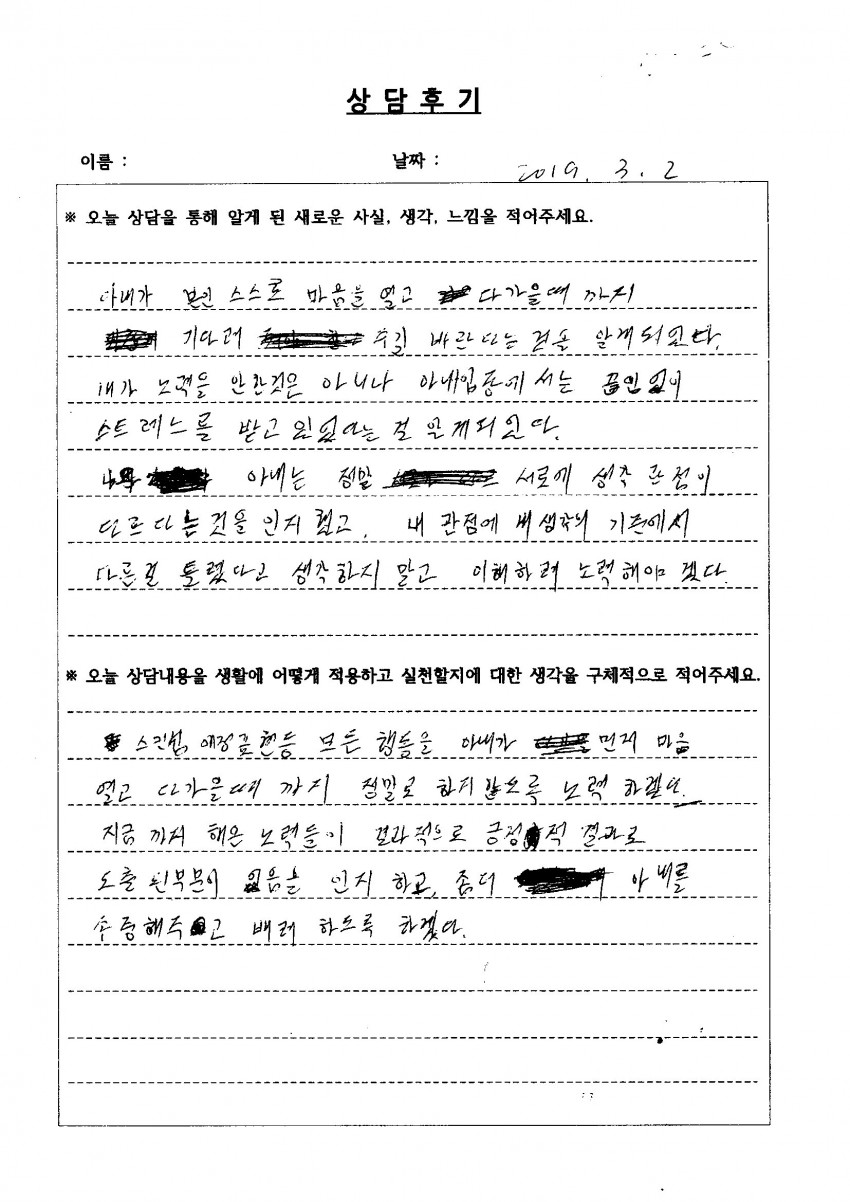 상 담 후 기
이름 : 날짜 : 2019. 3. 2
※ 오늘 상담을 통해 알게 된 새로운 사실, 생각, 느낌을 적어주세요.
아내가 본인 스스로 마음을 열고 다가올때 까지
기다려 주길 바란다는 것을 알게되었다.
내가 노력을 안한것은 아니나 아내입장에서는 끊임없이
스트레스를 받고 있었다는 걸 알게되었다.
아내는 정말 서로에 생각 관점이
다르다는것을 인지했고, 내 관점에 내 생각의 기준에서
다른걸 틀렸다고 생각하지 말고 이해하려 노력해야 겠다.
※ 오늘 상담내용을 생활에 어떻게 적용하고 실천할지에 대한 생각을 구체적으로 적어주세요.
스킨쉽 애정표현등 모든 행동을 아내가 먼저 마음
열고 다가올때 까지 정말로 하지않도록 노력 하겠다.
지금 까지 해온 노력들이 결과적으로 긍정적 결과로
도출 된부분이 없음을 인지 하고, 좀더 아내를
존중해주고 배려 하도록 하겠다.